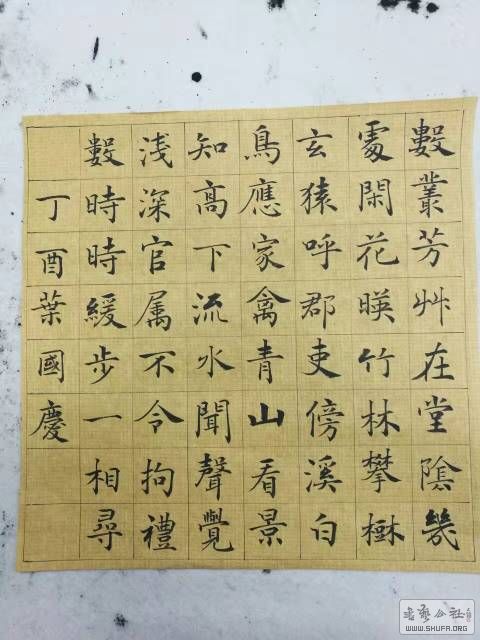 數叢芳艸在堂陰幾
處閑花暎竹林攀樹
玄猿呼郡吏傍溪白
鳥應家禽青山看景
知髙下流水聞聲覺
淺深官属不令拘禮
數時時緩步一相尋
丁酉葉國慶
WWW.SHUFA.ORG